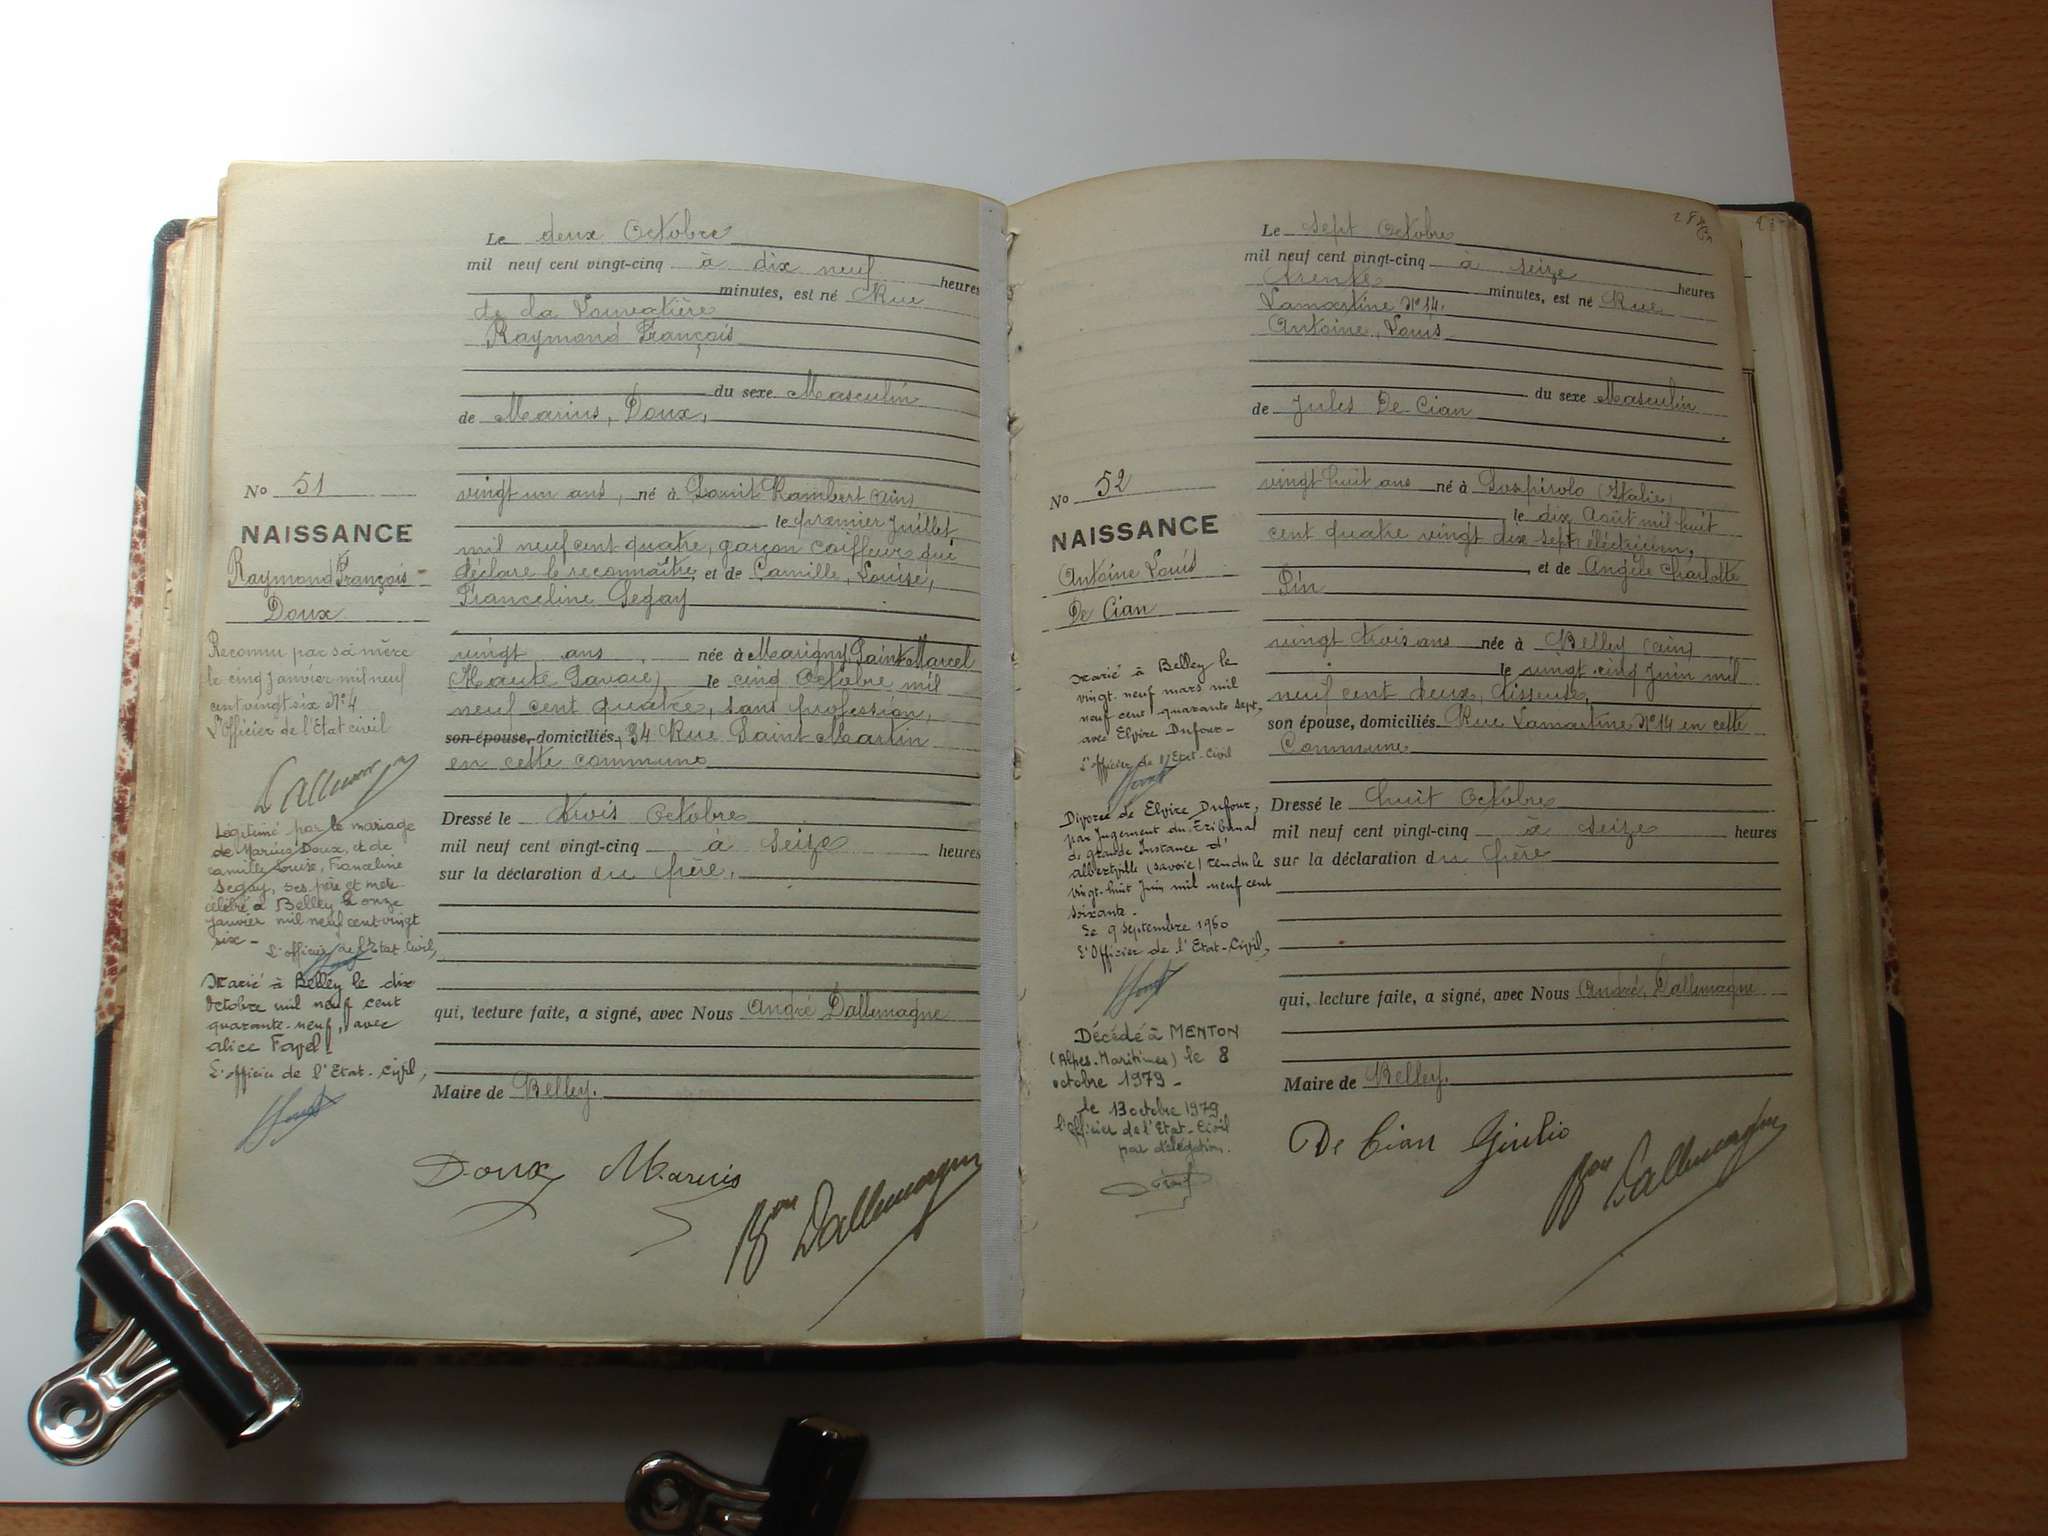 Le deux Octobre
mil neuf cent vingt-cinq à dix neuf heures
minutes, est né Rue
de la Louvatière
Raymond François
du sexe Masculin
de Marius, Doux,
No 51
vingt un ans, né à Saint Rambert (Ain)
le premier Juillet
NAISSANCE
mil neuf cent quatre, garçon coiffeur qui
Raymond François
déclare le reconnaître, et de Camille, Louise,
Doux
Franceline Segay
Reconnu par sa mère
le cinq Janvier mil neuf
cent vingt six N° 4
L'Officier de l'Etat civil
Dallemagne
vingt ans, née à Marigny Saint Marcel
(Haute Savoie) le cinq Octobre mil
neuf cent quatre, sans profession,
son épouse, domiciliés, 34 Rue Saint Martin
en cette commune
Légitimé par le mariage
de Marius Doux, et de
Camille Louise, Franceline
Segay, ses père et mère
célébré à Belley le onze
Janvier mil neuf cent vingt
six -
L'officier de l'Etat Civil,
Marié à Belley le dix
Octobre mil neuf cent
quarante-neuf, avec
Alice Fayel.
L'officier de l'Etat-Civil,
Dressé le trois Octobre
mil neuf cent vingt-cinq à seize heures
sur la déclaration du père,
qui, lecture faite, a signé, avec Nous André Dallemagne
Maire de Belley.
Doux Marius
Bon Dallemagne
Le sept Octobre
mil neuf cent vingt-cinq à seize heures
trente minutes, est né Rue
Lamartine N° 14.
Antoine, Louis
du sexe Masculin
de Jules De Cian
No 52
vingt huit ans né à Sospirolo (Italie)
le dix Août mil huit
NAISSANCE
cent quatre vingt dix-sept, électricien,
Antoine Louis
et de Angèle Charlotte
De Cian
Pin
vingt trois ans née à Belley (Ain)
le vingt cinq Juin mil
neuf cent deux, tisseuse,
son épouse, domiciliés Rue Lamartine N° 14 en cette
Commune
Marié à Belley le
vingt-neuf mars mil
neuf cent quarante sept,
avec Elvire Dufour -
L'officier de l'Etat-Civil
Divorcé de Elvire Dufour,
par Jugement du Tribunal
de grande Instance d'
Albertville (Savoie) rendu le
vingt-huit Juin mil neuf cent
soixante -
Le 9 septembre 1960
L'Officier de l'Etat-Civil,
Décédé à MENTON
(Alpes-Maritimes) le 8
octobre 1979 -
le 13 octobre 1979
l'Officier de l'Etat-Civil
par délégation.
Dressé le huit Octobre
mil neuf cent vingt-cinq à seize heures
sur la déclaration du père
qui, lecture faite, a signé, avec Nous André, Dallemagne
Maire de Belley.
De Cian Giulio
Bon Dallemagne